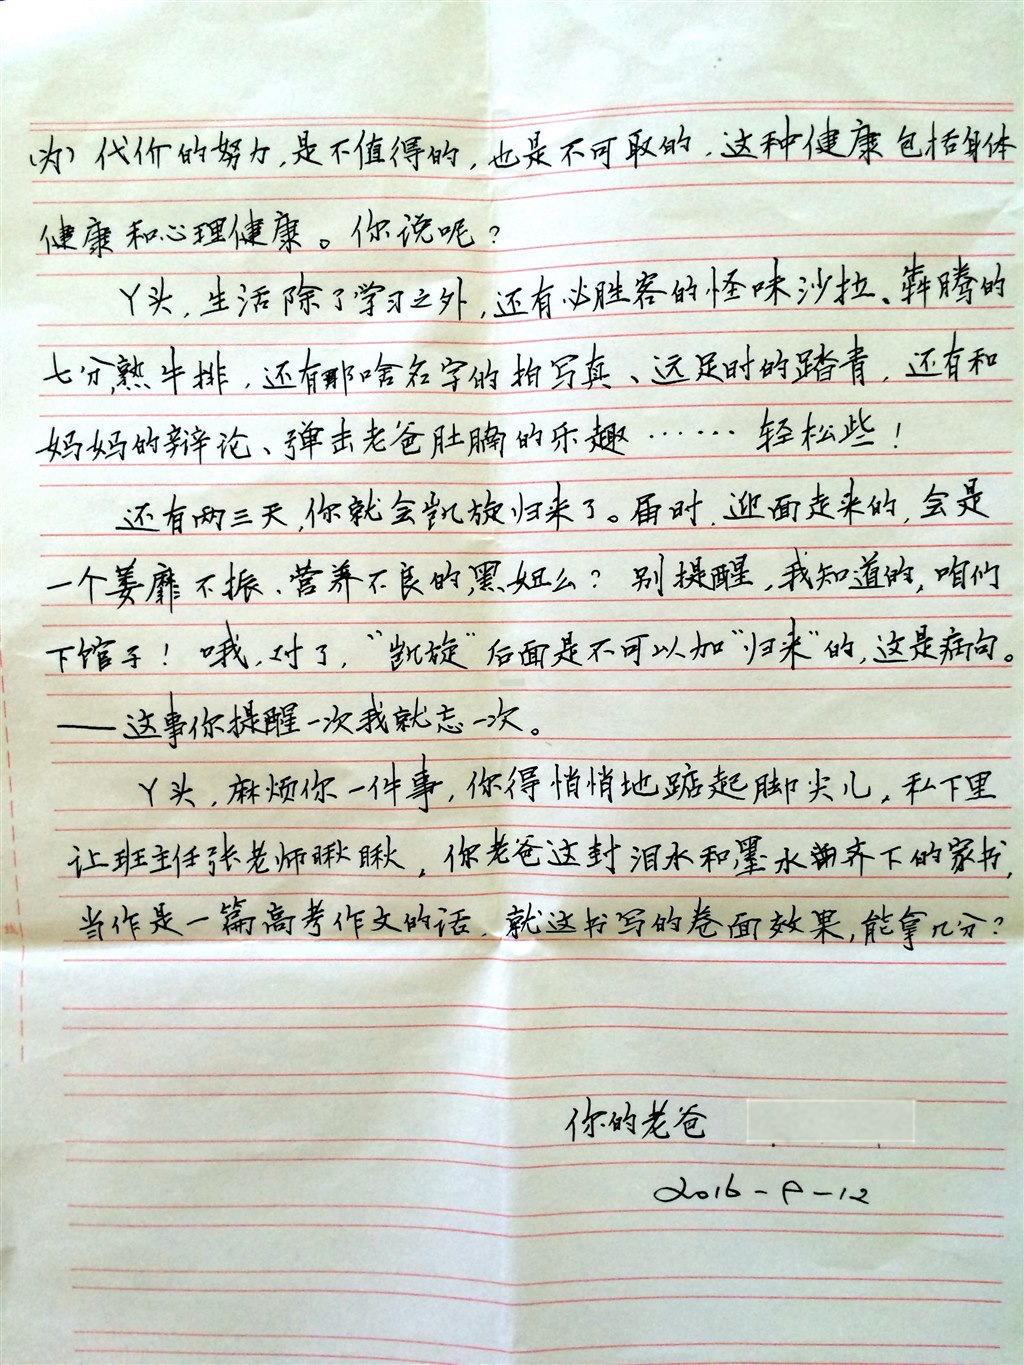 （为）代价的努力，是不值得的，也是不可取的，这种健康包括身体
健康和心理健康。你说呢？
丫头，生活除了学习之外，还有必胜客的怪味沙拉、犇腾的
七分熟牛排，还有那啥名字的拍写真、远足时的踏青，还有和
妈妈的辩论、弹击老爸肚腩的乐趣……轻松些！
还有两三天，你就会凯旋归来了。届时，迎面走来的，会是
一个萎靡不振、营养不良的黑妞么？别提醒，我知道的，咱们
下馆子！哦，对了，“凯旋”后面是不可以加“归来”的，这是病句。
——这事你提醒一次我就忘一次。
丫头，麻烦你一件事，你得悄悄地踮起脚尖儿，私下里
让班主任张老师瞅瞅，你老爸这封泪水和墨水齐下的家书，
当作是一篇高考作文的话，就这书写的卷面效果，能拿几分？
你的老爸
2016-9-12